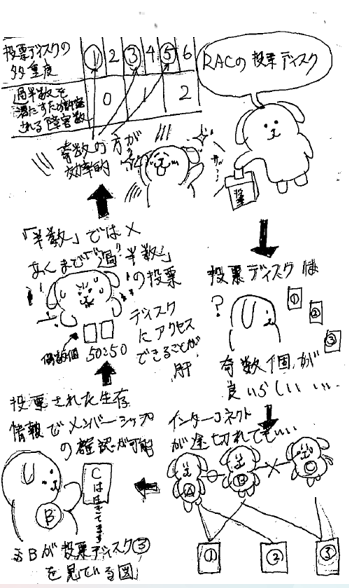 RACの投票ディスク
投票ディスクは
?
奇数個が
良いらしい…
①
②
③
インターコネクト
が途切れても…
A
B
C
①
②
③
投票された生存
情報でメンバーシップ
の確認が可能
B
Cは生きてます
↓Bが投票ディスク③
を見ている図
「半数」では×
あくまで"過"半数」
の投票
ディスク
にアクセス
できることが
肝
偶数個 50:50
奇数の方が
効率的
投票ディスクの
多重度
① 2 ③ 4 ⑤ 6
過半数を
満たすため許容
される障害数
0 2